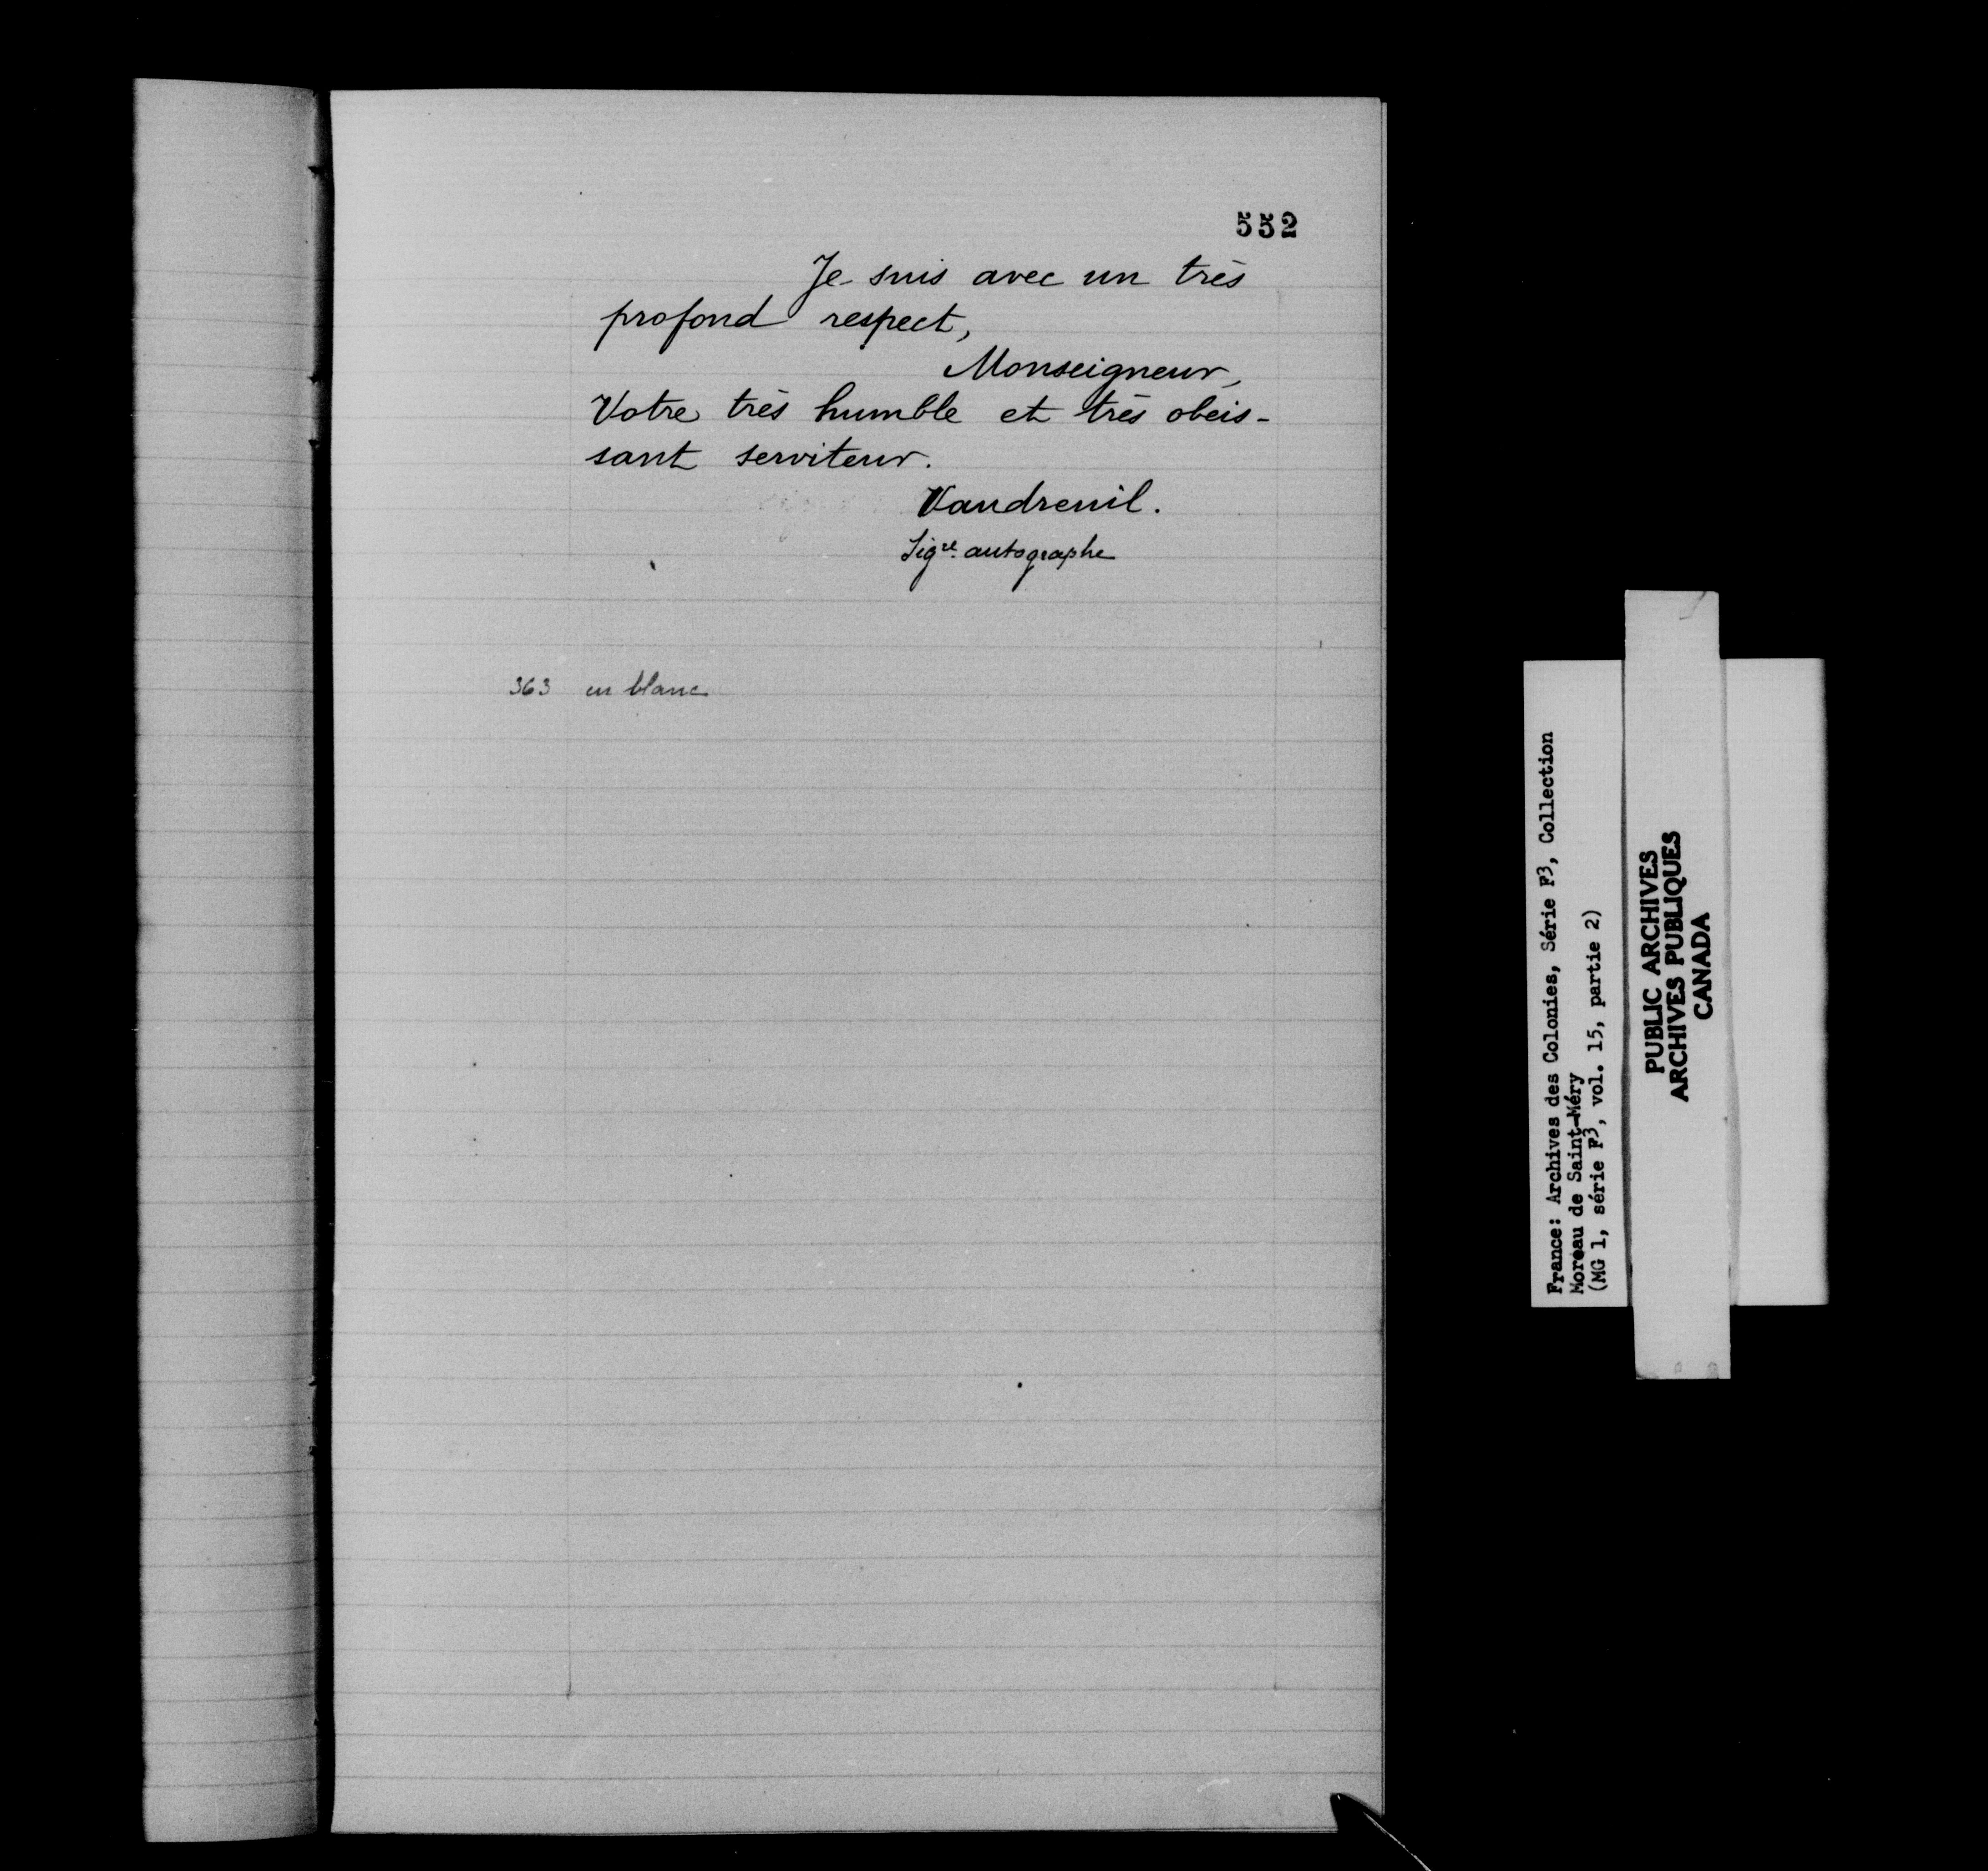 552
Je suis avec un très
profond respect,
Monseigneur,
Votre très humble et très obeis-
sant serviteur.
Vaudreuil.
Sigre. autographe
363 en blanc
France: Archives des Colonies, Série F3, Collection
Moreau de Saint-Méry
(MG 1, série F3, vol. 15, partie 2)
PUBLIC ARCHIVES
ARCHIVES PUBLIQUES
CANADA